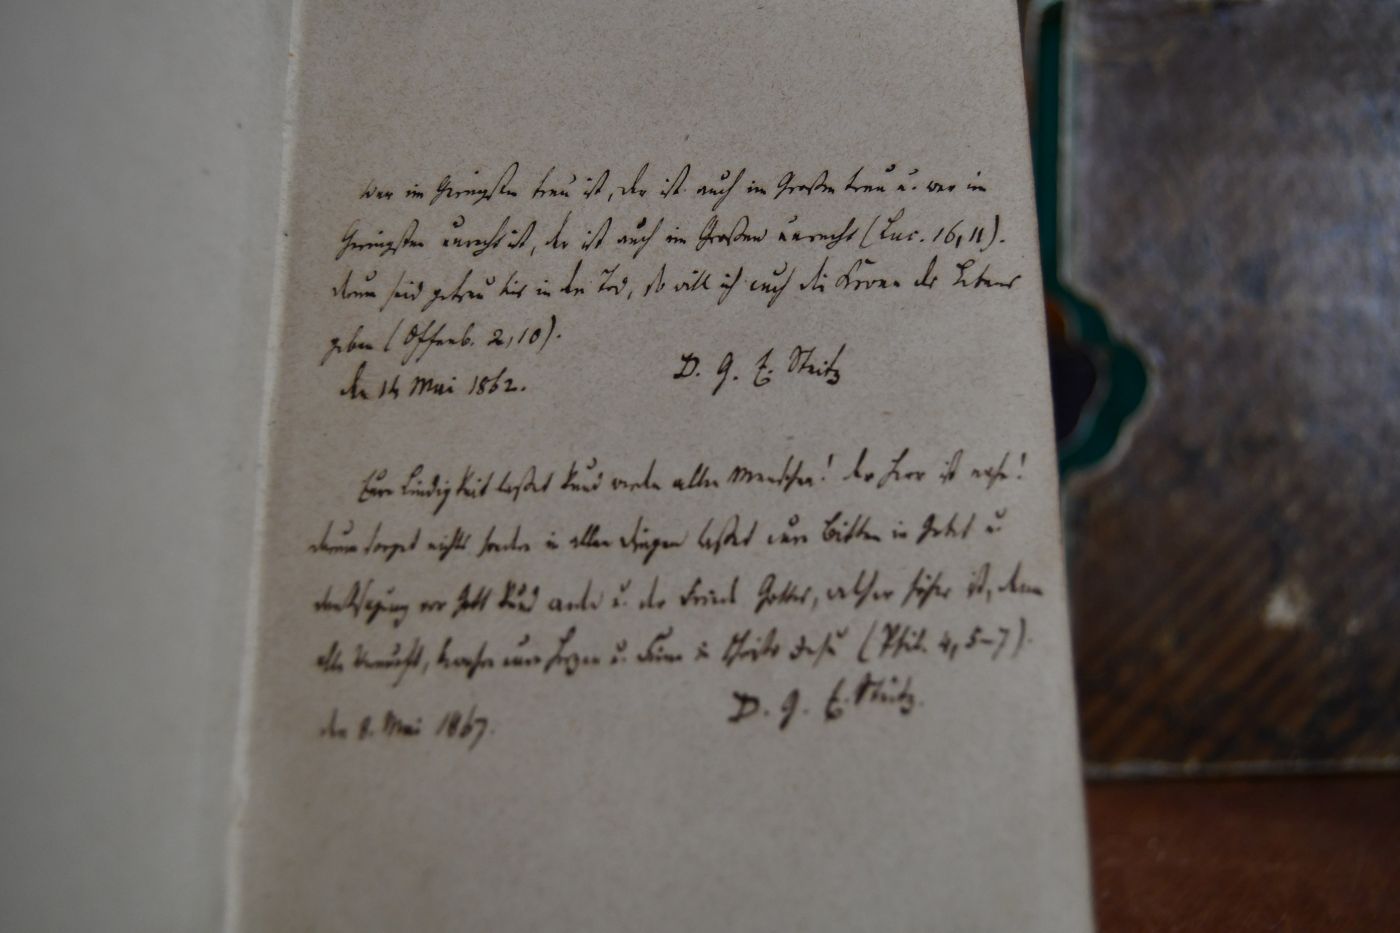 Wer im Geringsten treu ist, der ist auch im Großen treu u. wer im
Geringsten unrecht ist, der ist auch im Großen unrecht (Luc. 16, 11).
darum seid getreu bis in den Tod, so will ich euch die Krone des Lebens
geben (Offenb. 2, 10).
den 14 Mai 1862.
D. G. E. Steitz
Eure Lindigkeit lasset kund werden allen Menschen! der Herr ist nahe!
darum sorget nichts sondern in allen Dingen lasset eure Bitten in Gebet u
Danksagung vor Gott kund werden u. der Friede Gottes, welcher höher ist, denn
alle Vernunft, bewahre eure Herzen u. Sinne in Christo Jesu (Phil. 4, 5–7).
D. G. E. Steitz.
den 8. Mai 1867.